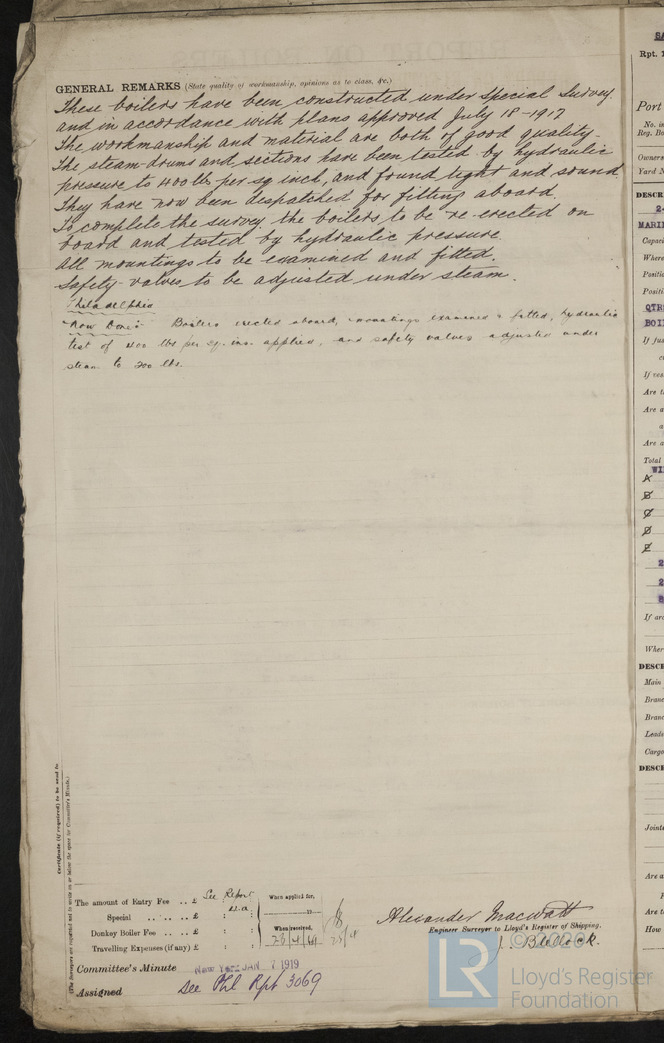 GENERAL REMARKS (State quality of workmanship, opinions as to class, &c.)
These boilers have been constructed under Special Survey
and in accordance with plans approved July 18-1917
The workmanship and material are both of good quality-
The steam-drums and sections have been tested by hydraulic
pressure to 400 lbs per sq inch, and found tight and sound.
They have now been despatched for fitting aboard.
To complete the survey the boilers to be re-erected on
board and tested by hydraulic pressure.
All mountings to be examined and fitted.
Safety-valves to be adjusted under steam.
Philadelphia
Now Done:- Boilers erected aboard, mountings examined & fitted, hydraulic
test of 400 lbs per sq. ins. applied, and safety valves adjusted under
steam to 200 lbs.
Certificate (if required) to be sent to
(The Surveyors are requested not to write on or below the space for Committee's Minute.)
The amount of Entry Fee .. £ See Report
Special .. .. .. £
Donkey Boiler Fee .. .. £
Travelling Expenses (if any) £
When applied for,
19
When received,
Alexander Macwatt
Engineer Surveyor to Lloyd's Register of Shipping.
Committee's Minute New York JAN 7 1919
Assigned See Phl Rpt 3069
© 2020
LR Lloyd's Register
Foundation
Rpt. 
Port
No. in
Reg. Bo
Owners
Yard N
DESCR
MARI
Capaci
Where
Positi
Positi
QTR
BOI
If jus
If ves
Are t
Are a
Are a
Total
If are
Wher
DESC
Main
Branc
Branc
Leads
Cargo
DESC
Joints
Are a
Are t
How